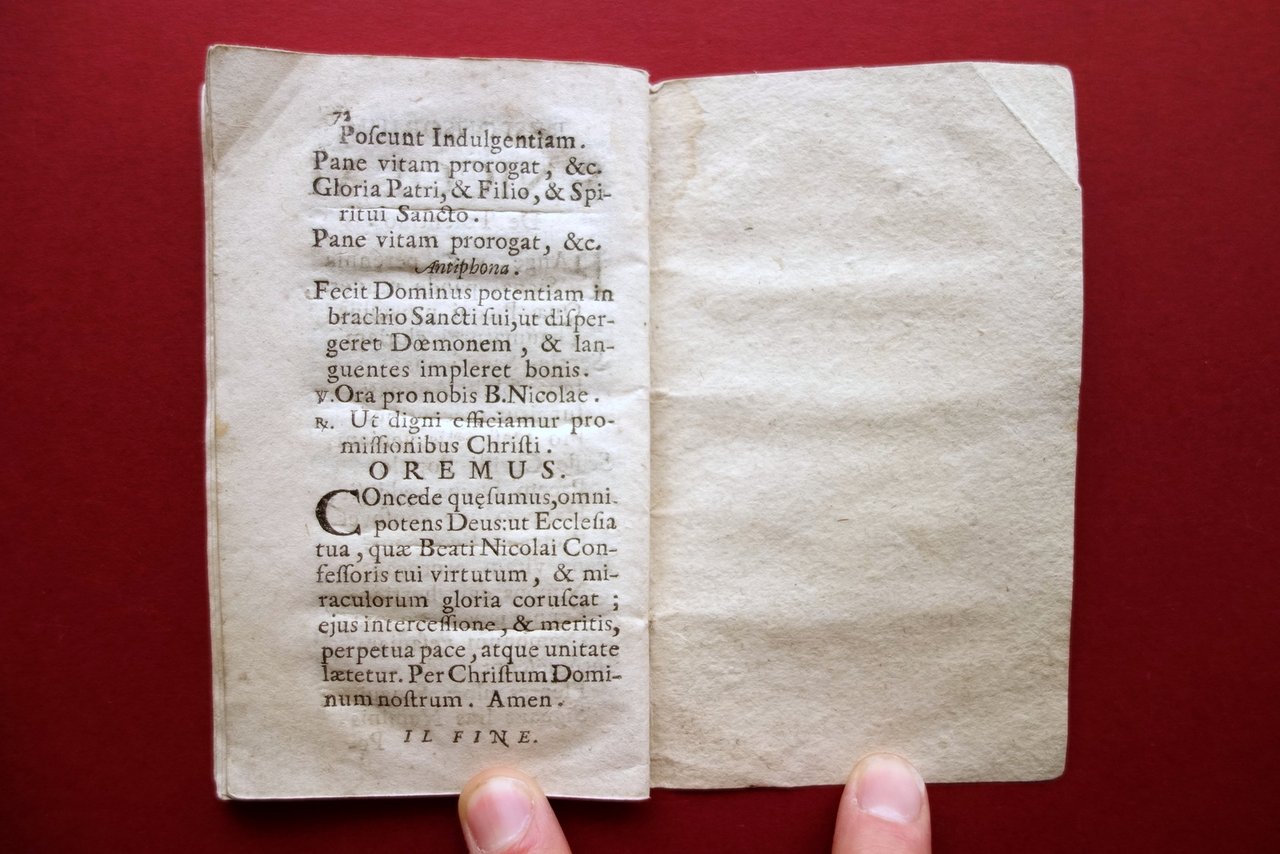 72
Poſcunt Indulgentiam.
Pane vitam prorogat, &c.
Gloria Patri, & Filio, & Spi-
ritui Sancto.
Pane vitam prorogat, &c.
Antiphona.
Fecit Dominus potentiam in
brachio Sancti ſui, ut diſper-
geret Dœmonem, & lan-
guentes impleret bonis.
℣. Ora pro nobis B. Nicolae.
℞. Ut digni efficiamur pro-
miſſionibus Chriſti.
OREMUS.
COncede quęſumus, omni-
potens Deus: ut Eccleſia
tua, quæ Beati Nicolai Con-
feſſoris tui virtutum, & mi-
raculorum gloria coruſcat;
ejus interceſſione, & meritis,
perpetua pace, atque unitate
lætetur. Per Chriſtum Domi-
num noſtrum. Amen.
IL FINE.